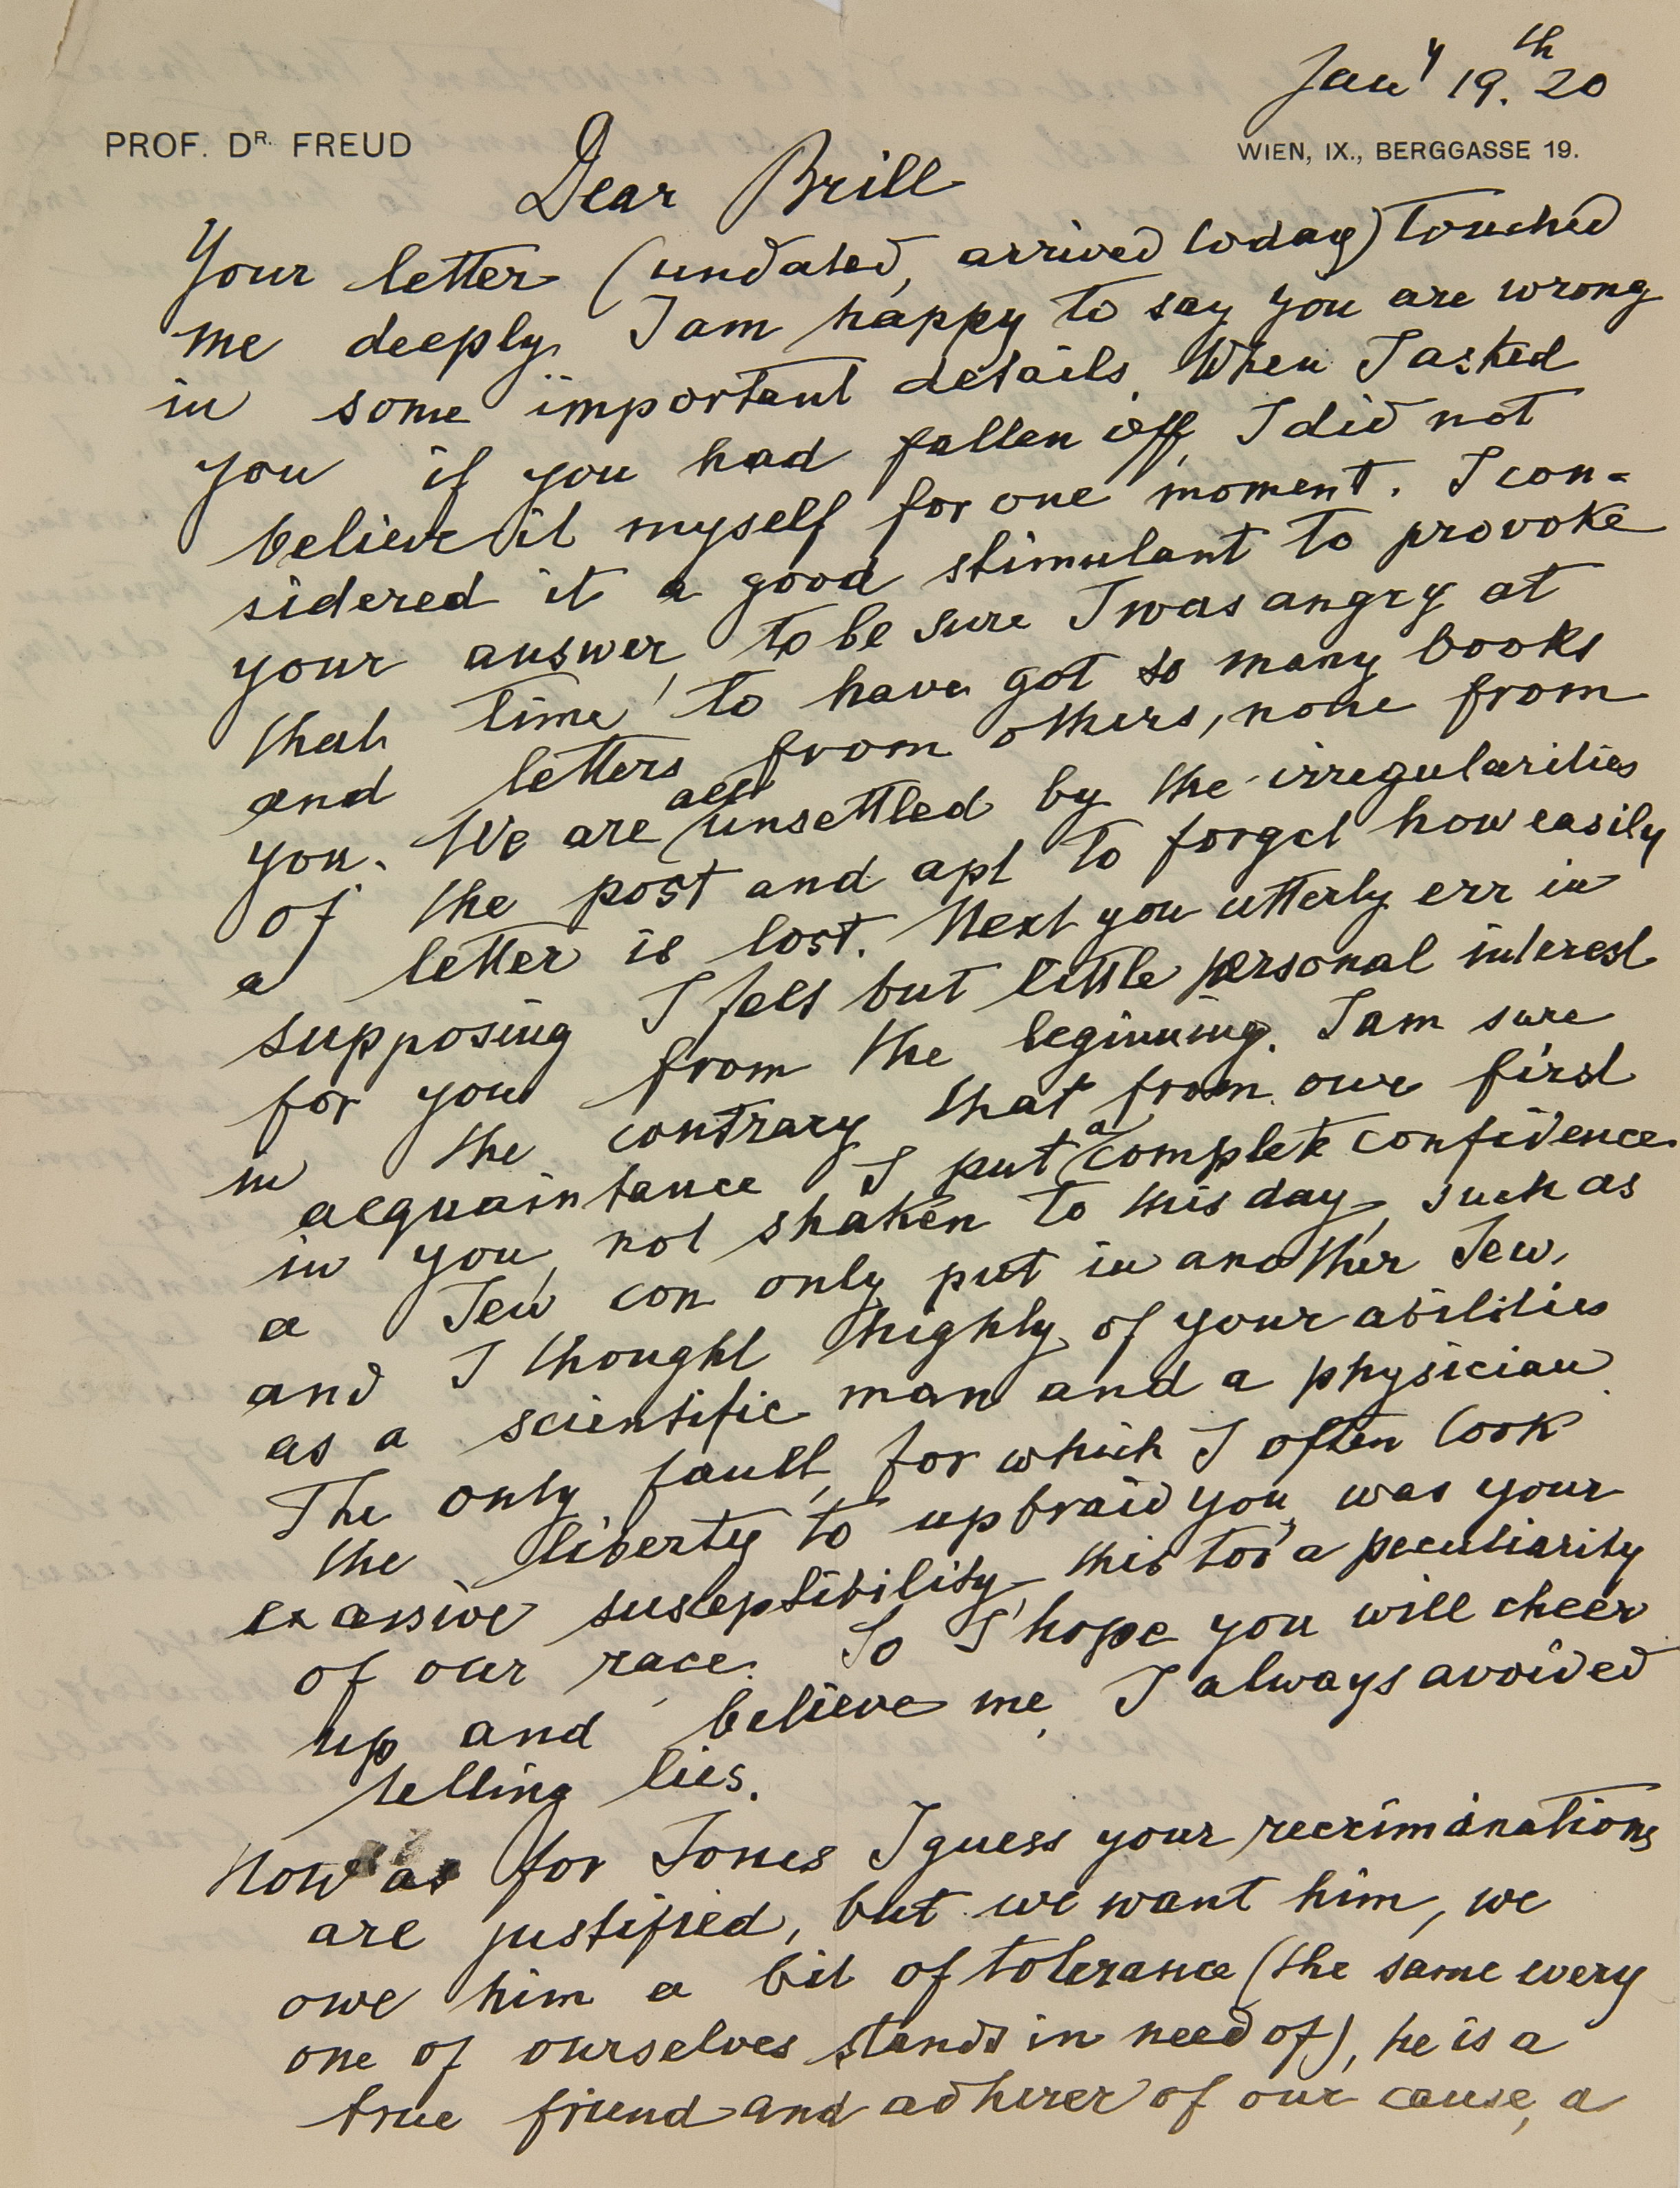 Jan^y 19.^th 20
PROF. D^R. FREUD
WIEN, IX., BERGGASSE 19.
Dear Brill
Your letter (undated, arrived today) touched
me deeply. I am happy to say you are wrong
in some important details. When I asked
you if you had fallen off, I did not
believe it myself for one moment. I con-
sidered it a good stimulant to provoke
your answer, to be sure I was angry at
that time, to have got so many books
and letters from others, none from
you. We are all unsettled by the irregularities
of the post and apt to forget how easily
a letter is lost. Next you utterly err in
supposing I felt but little personal interest
for you from the beginning. I am sure
in the contrary that from our first
acquaintance I put a complete confidence
in you, not shaken to this day, such as
a Jew can only put in another Jew,
and I thought highly of your abilities
as a scientific man and a physician.
The only fault, for which I often took
the liberty to upbraid you, was your
excessive susceptibility, this too a peculiarity
of our race. So I hope you will cheer
up and believe me, I always avoided
telling lies.
Now as for Jones I guess your recriminations
are justified, but we want him, we
owe him a bit of tolerance (the same every
one of ourselves stands in need of), he is a
true friend and adherer of our cause, a